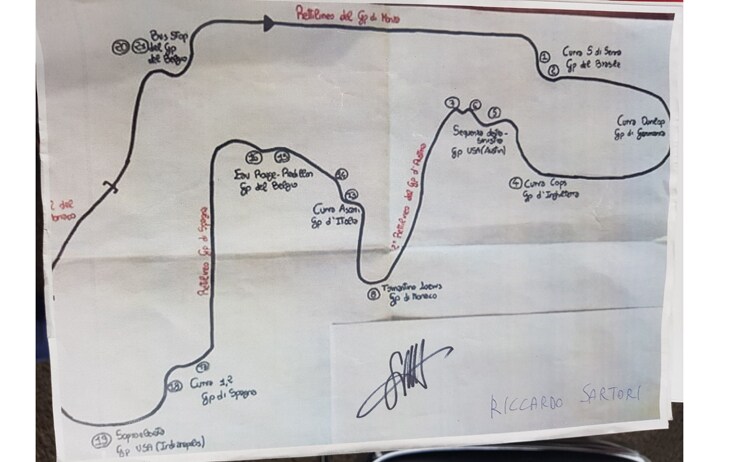 Rettilineo del Gp di
20 21 Bus Stop
del Gp
del Belgio
1
2
Curva S di Senna
Gp del Brasile
Curva Dunlop
Gp di Germania
7 6 5
Sequenza destra-
sinistra
Gp USA (Austin)
4 Curva Cops
Gp d'Inghilterra
Rettilineo del Gp d'
16 15
Eau Rouge-Raidillon
Gp del Belgio
14
13
Curva Ascari
Gp d'Italia
Rettilineo Gp di Spagna
8 Tornantino Loews
Gp di Monaco
18 17
Curva 1,2
Gp di Spagna
19
Gp USA (Indianapolis)
RICCARDO SARTORI